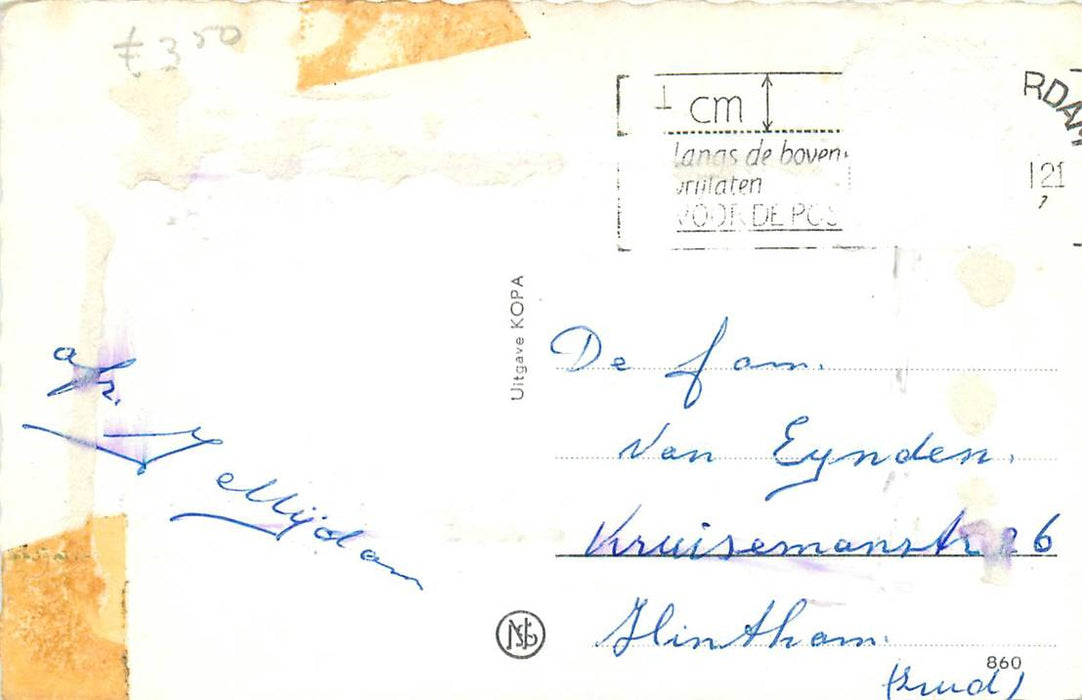 £ 3 50
1 cm
langs de boven-
vrijlaten
VOOR DE POS
RDAM
121
Uitgave KOPA
afz.
J Mijdam
De fam.
Van Eynden.
Kruisemanstr 26
Hintham.
860